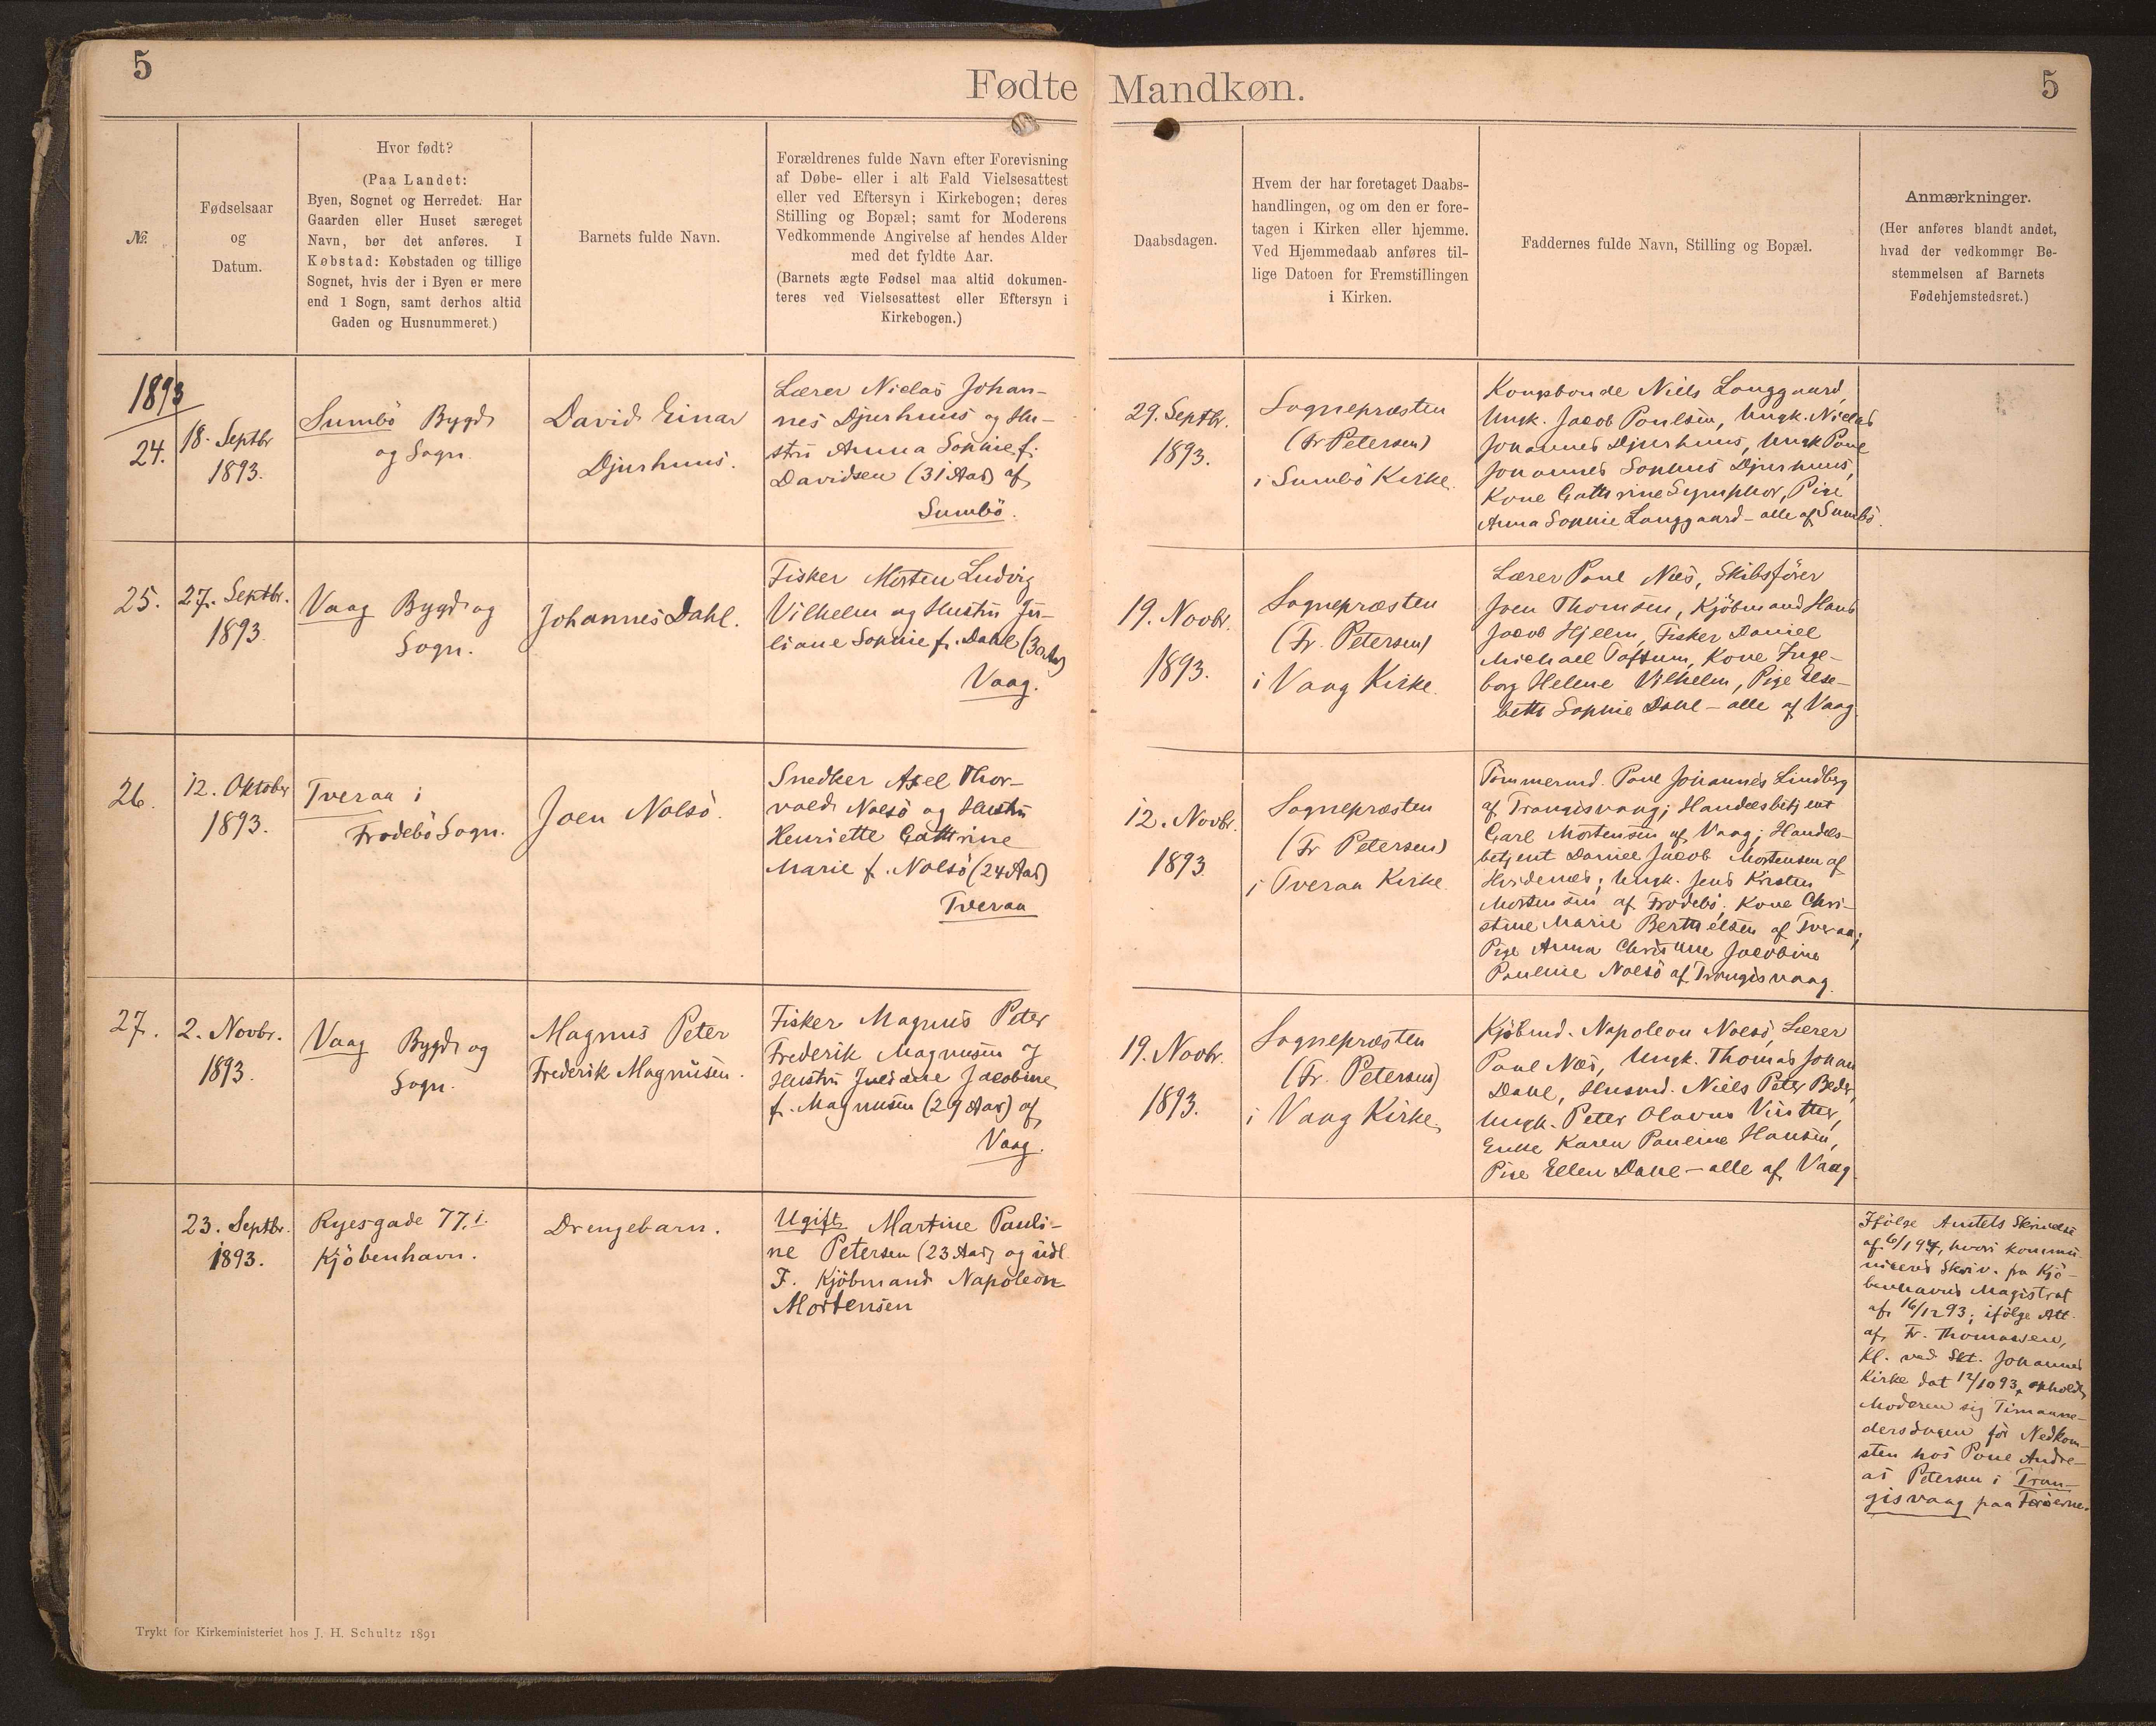 5
Fødte Mandkøn.
5
№.
Fødselsaar
og
Datum.
Hvor født?
(Paa Landet:
Byen, Sognet og Herredet. Har
Gaarden eller Huset særeget
Navn, bør det anføres. I
Købstad: Købstaden og tillige
Sognet, hvis der i Byen er mere
end 1 Sogn, samt derhos altid
Gaden og Husnummeret.)
Barnets fulde Navn.
Forældrenes fulde Navn efter Forevisning
af Døbe- eller i alt Fald Vielsesattest
eller ved Eftersyn i Kirkebogen; deres
Stilling og Bopæl; samt for Moderens
Vedkommende Angivelse af hendes Alder
med det fyldte Aar.
(Barnets ægte Fødsel maa altid dokumen-
teres ved Vielsesattest eller Eftersyn i
Kirkebogen.)
Daabsdagen.
Hvem der har foretaget Daabs-
handlingen, og om den er fore-
tagen i Kirken eller hjemme.
Ved Hjemmedaab anføres til-
lige Datoen for Fremstillingen
i Kirken.
Faddernes fulde Navn, Stilling og Bopæl.
Anmærkninger.
(Her anføres blandt andet,
hvad der vedkommer Be-
stemmelsen af Barnets
Fødehjemstedsret.)
1893
24.
18. Septbr
1893.
Sumbö Bygd
og Sogn.
David Einar
Djurhuus.
Lærer Niclas Johan-
nes Djurhuus og Hu-
stru Anna Sophie f.
Davidsen (31 Aar) af
Sumbö.
29. Septbr.
1893.
Sognepræsten
(Fr Petersen)
i Sumbö Kirke.
Kongsbonde Niels Langgaard,
Ungk. Jacob Poulsen, Ungk. Niclas
Johannes Djurhuus, Ungk Poul
Johannes Sophus Djurhuus,
Kone Cathrine Symphor, Pige
Anna Sophie Langgaard – alle af Sumbö.
25.
27. Septbr.
1893.
Vaag Bygd og
Sogn.
Johannes Dahl.
Fisker Morten Ludvig
Vilhelm og Hustru Ju-
liane Sophie f. Dahl (30 Aar)
Vaag.
19. Novbr.
1893.
Sognepræsten
(Fr. Petersen)
i Vaag Kirke.
Lærer Poul Næs, Skibsförer
Joen Thomsen, Kjöbmand Hans
Jacob Hjelm, Fisker Daniel
Michael Toftum, Kone Inge-
borg Helene Vilhelm, Pige Else-
beth Sophie Dahl – alle af Vaag.
26.
12. Oktober
1893.
Tveraa i
Frodebö Sogn.
Joen Nolsö.
Snedker Axel Thor-
vald Nolsö og Hustru
Henriette Cathrine
Marie f. Nolsö (24 Aar)
Tveraa
12. Novbr.
1893.
Sognepræsten
(Fr Petersen)
i Tveraa Kirke.
Tömmermd. Poul Johannes Lindberg
af Trangisvaag; Handelsbetjent
Carl Mortensen af Vaag; Handels-
betjent Daniel Jacob Mortensen af
Hvidenæs; Ungk. Jens Kristen
Mortensen af Frodebö; Kone Chri-
stine Marie Berthelsen af Tveraa;
Pige Anna Christine Jacobine
Pauline Nolsö af Trangisvaag.
27.
2. Novbr.
1893.
Vaag Bygd og
Sogn.
Magnus Peter
Frederik Magnusen.
Fisker Magnus Peter
Frederik Magnusen og
Hustru Juliane Jacobine
f. Magnusen (29 Aar) af
Vaag.
19. Novbr.
1893.
Sognepræsten
(Fr. Petersen)
i Vaag Kirke.
Kjöbmd. Napoleon Nolsö, Lærer
Poul Næs, Ungk. Thomas Johan
Dahl, Husmd. Niels Peter Beder,
Ungk. Peter Olavus Vinther,
Enke Karen Pauline Hansen,
Pige Ellen Dahl – alle af Vaag.
23. Septbr.
1893.
Ryesgade 77. I.
Kjöbenhavn.
Drengebarn.
Ugift Martine Pauli-
ne Petersen (23 Aar) og udl.
F. Kjöbmand Napoleon
Mortensen
Ifölge Amtets Skrivelse
af 6/1 94, hvori kommu-
niceres Skriv. fra Kjö-
benhavns Magistrat
af 16/12 93; ifölge Att.
af Fr. Thomassen,
Kl. ved Skt. Johannes
Kirke dat 12/10 93, opholdt
Moderen sig Timaane-
dersdagen för Nedkom-
sten hos Poul Andre-
as Petersen i Tran-
gisvaag paa Færöerne.
Trykt for Kirkeministeriet hos J. H. Schultz 1891